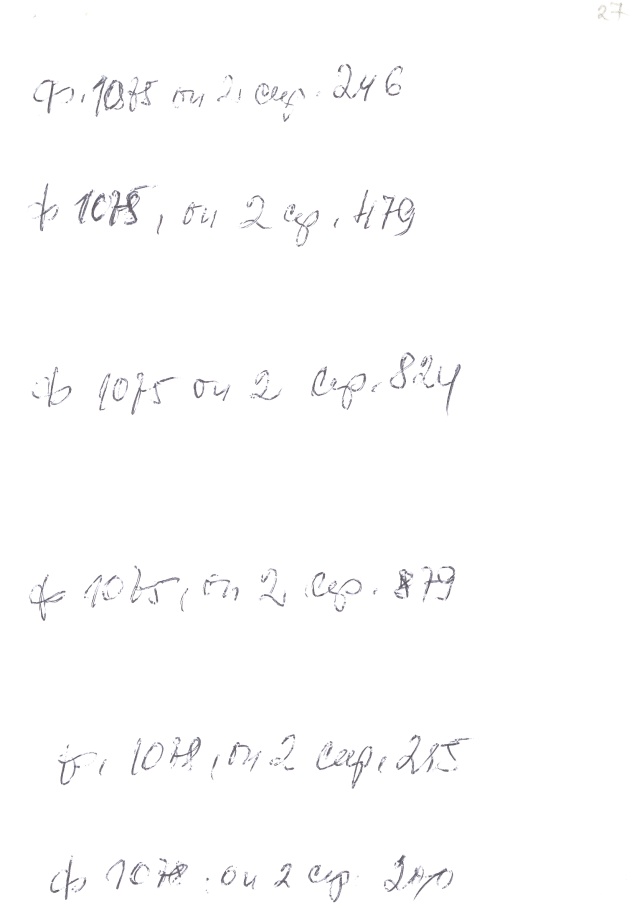 27
ф. 1075 оп 2. сер. 246
ф 1075, оп 2 ср. 479
ф 1075 оп 2 сер. 824
ф 1075, оп 2, сер. 879
ф. 1078, оп 2 сер. 215
ф 1078. оп 2 сер.